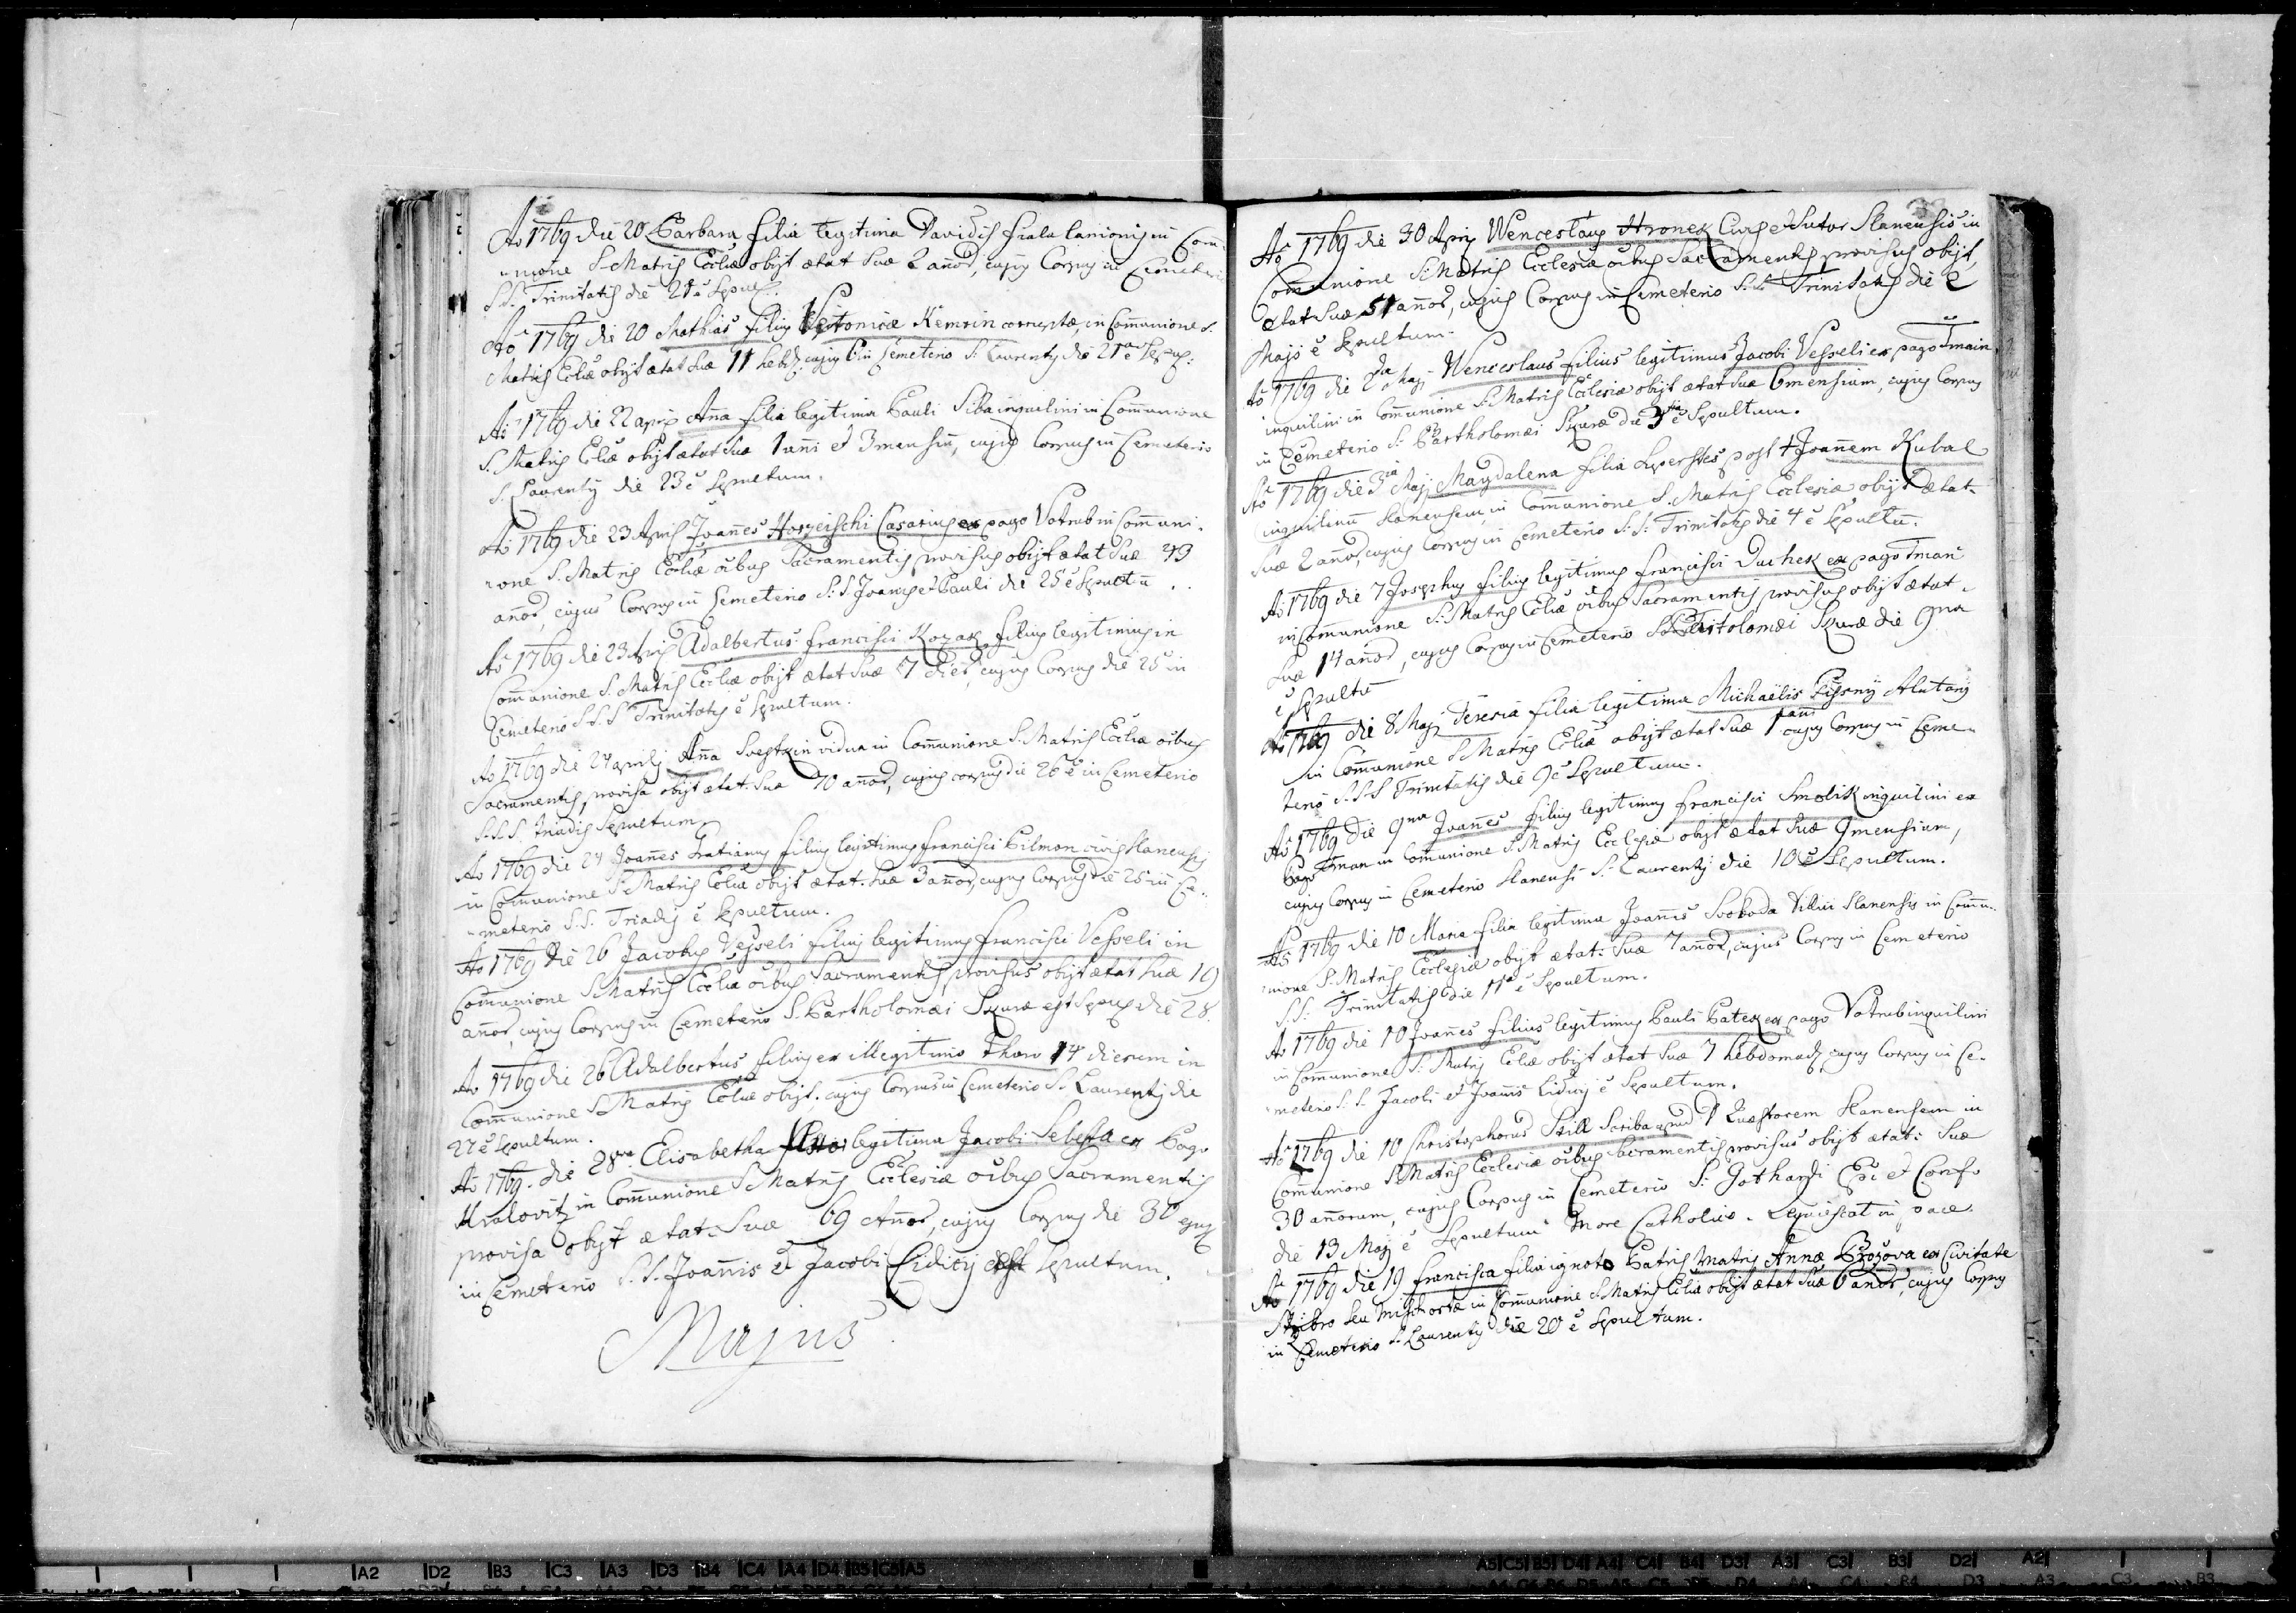 Ao 1769 die 20 Barbara filia legitima Davidis Fiala lanionis in Com-
-unione S. Matris Eccliæ obijt ætat suæ 2 añor, cujus Corpus in Cemeterio
S.S. Trinitatis die 21 ẽ Sepul.
Ao 1769 die 20 Mathias filius Veronicæ Nemcin corruptæ, in Comunione S.
Matris Ecliæ obijt ætat suæ 11 hebd, cujus C. in Cemeterio S. Laurentij die 21 ẽ Sepul:
Ao 1769 die 22 april Aña filia legitima Pauli Siba inquilini in Comunione
S. Matris Ecliæ obijt ætat suæ 1 añi et 3 mensiũ, cujus Corpus in Cemeterio
S. Laurentij die 23 ẽ Sepultum.
Ao 1769 die 23 Aprilis Joañes Horzeischi Casarius ex pago Votrub in Comuni-
-one S. Matris Eccliæ oibus Sacramentis provisus obijt ætat suæ 43
añor, cujus Corpus in Cemeterio S.S. Joanis et Pauli die 25 ẽ Sepultũ.
Ao 1769 die 23 Apris Adalbertus Francisci Kozak filius legitimus in
Comunione S. Matris Eccliæ obijt ætat suæ 7 dier cujus Corpus die 25 in
Cemeterio S.S.S Trinitatis ẽ Sepultum.
Ao 1769 die 24 aprilis Aña vidua in Comunione S. Matris Ecclia oibus
Sacramentis provisa obijt ætat. suæ 70 añor, cujus corpus die 26 ẽ in Cemeterio
S.S.S. Triadis Sepultum
Ao 1769 die 24 Joañes filius legitimus Francisci Pilmon civis Slanensis
in Comunione S. Matris Ecliæ obijt ætat. suæ 3 añor, cujus Corpus die 25 in Ce-
-meterio S.S. Triadis ẽ Sepultum.
Ao 1769 die 26 Jacobus Vesseli filius legitimus Francisci Vesseli in
Comunione S. Matris Eccliæ oibus Sacramentis provisus obijt ætat suæ 19
añor, cujus Corpus in Cemeterio S. Bartholomæi Skuræ est Sepul die 28.
Ao 1769 die 26 Adalbertus filius ex illegitimo thoro 14 dierum in
Comunione S. Matris Ecliæ obijt. cujus Corpus in Cemeterio S. Laurentij die
27 ẽ Sepultum.
Ao 1769. die 28va Elisabetha legitima Jacobi Sebesta ex Pago
Kralovitz in Comunione S. Matris Ecclesiæ oibus Sacramentis
provisa obijt ætat. suæ 69 Añor, cujus Corpus die 30 ejus
in Cemeterio S.S. Joañis et Jacobi Lidicij est sepultum.
Majus
Ao 1769 die 30 Apris Wenceslaus Hronek Civis et Sutor Slanensis in
Comunione S. Matris Ecclesiæ oibus Sacramentis provisus obijt,
ætat suæ 51 añor, cujus Corpus in Cemeterio S.S. Trinitatis die 2
Majo ẽ Sepultum.
Ao 1769 die 2da Maj Wenceslaus filius legitimus Jacobi Vesseli ex pago Tmain
inquilini in Comunione S. Matris Ecclesiæ obijt ætat suæ 6 mensium, cujus Corpus
in Cemeterio S. Bartholomæi Skuræ die 3tia ẽ Sepultum.
Ao 1769 die 3tia Maj Magdalena filia Superstes post + Joañem Kubal
inquilinũ Slanensem, in Comunione S. Matris Ecclesiæ obijt ætat.
suæ 2 añor, cujus Corpus in Cemeterio S.S. Trinitatis die 4 ẽ Sepultũ.
Ao 1769 die 7 Josephus filius legitimus Francisci Duchek ex pago Tmani
in Comunione S. Matris Ecliæ oibus Sacramentis provisus obijt ætat.
suæ 14 añor, cujus Corpus in Cemeterio S. Bartolomæi Skuræ die 9na
ẽ Sepultũ
Ao 1769 die 8 Maj Teresia filia legitima Michaëlis Pissny Alutarij
in Comunione S. Matris Ecliæ obijt ætat suæ 1 añi cujus Corpus in Ceme-
terio S.S.S Trinitatis die 9 ẽ Sepultum.
Ao 1769 die 9na Joañes filius legitimus Francisci Smolik inquilini ex
Pago Tman in Comunione S. Matris Ecclesiæ obijt ætat suæ 9 mensium,
cujus Corpus in Cemeterio Slanensi S. Laurentij die 10 ẽ Sepultum.
Ao 1769 die 10 Maria filia legitima Joañis Svoboda Villici Slanensis in Comu-
-nione S. Matris Ecclesiæ obijt ætat: suæ 7 añor, cujus Corpus in Cemeterio
S.S. Trinitatis die 11a ẽ Sepultum.
Ao 1769 die 10 Joañes filius legitimus Pauli Patek ex pago Votrub inquilini
in Comunione S. Matris Ecliæ obijt ætat suæ 7 hebdomad, cujus Corpus in Ce-
-meterio S.S. Jacobi et Joañis Lidicij ẽ Sepultum.
Ao 1769 die 10 Christophorus Still Scriba apud D Quæstorem Slanensem in
Comunione S. Matris Ecclesiæ oibus Sacramentis provisus obijt ætat: suæ
30 añorum, cujus Corpus in Cemeterio S. Gothardi Epi et Conf.
die 13 Maj ẽ Sepultum More Catholico. Requiescat in pace.
Ao 1769 die 19 Francisca filia ignoto Patris Matris Annæ ex Civitate
Stribro seu in Comunione S. Matris Ecliæ obijt ætat suæ 6 añor, cujus Corpus
in Cemeterio S. Laurentij die 20 ẽ Sepultum.